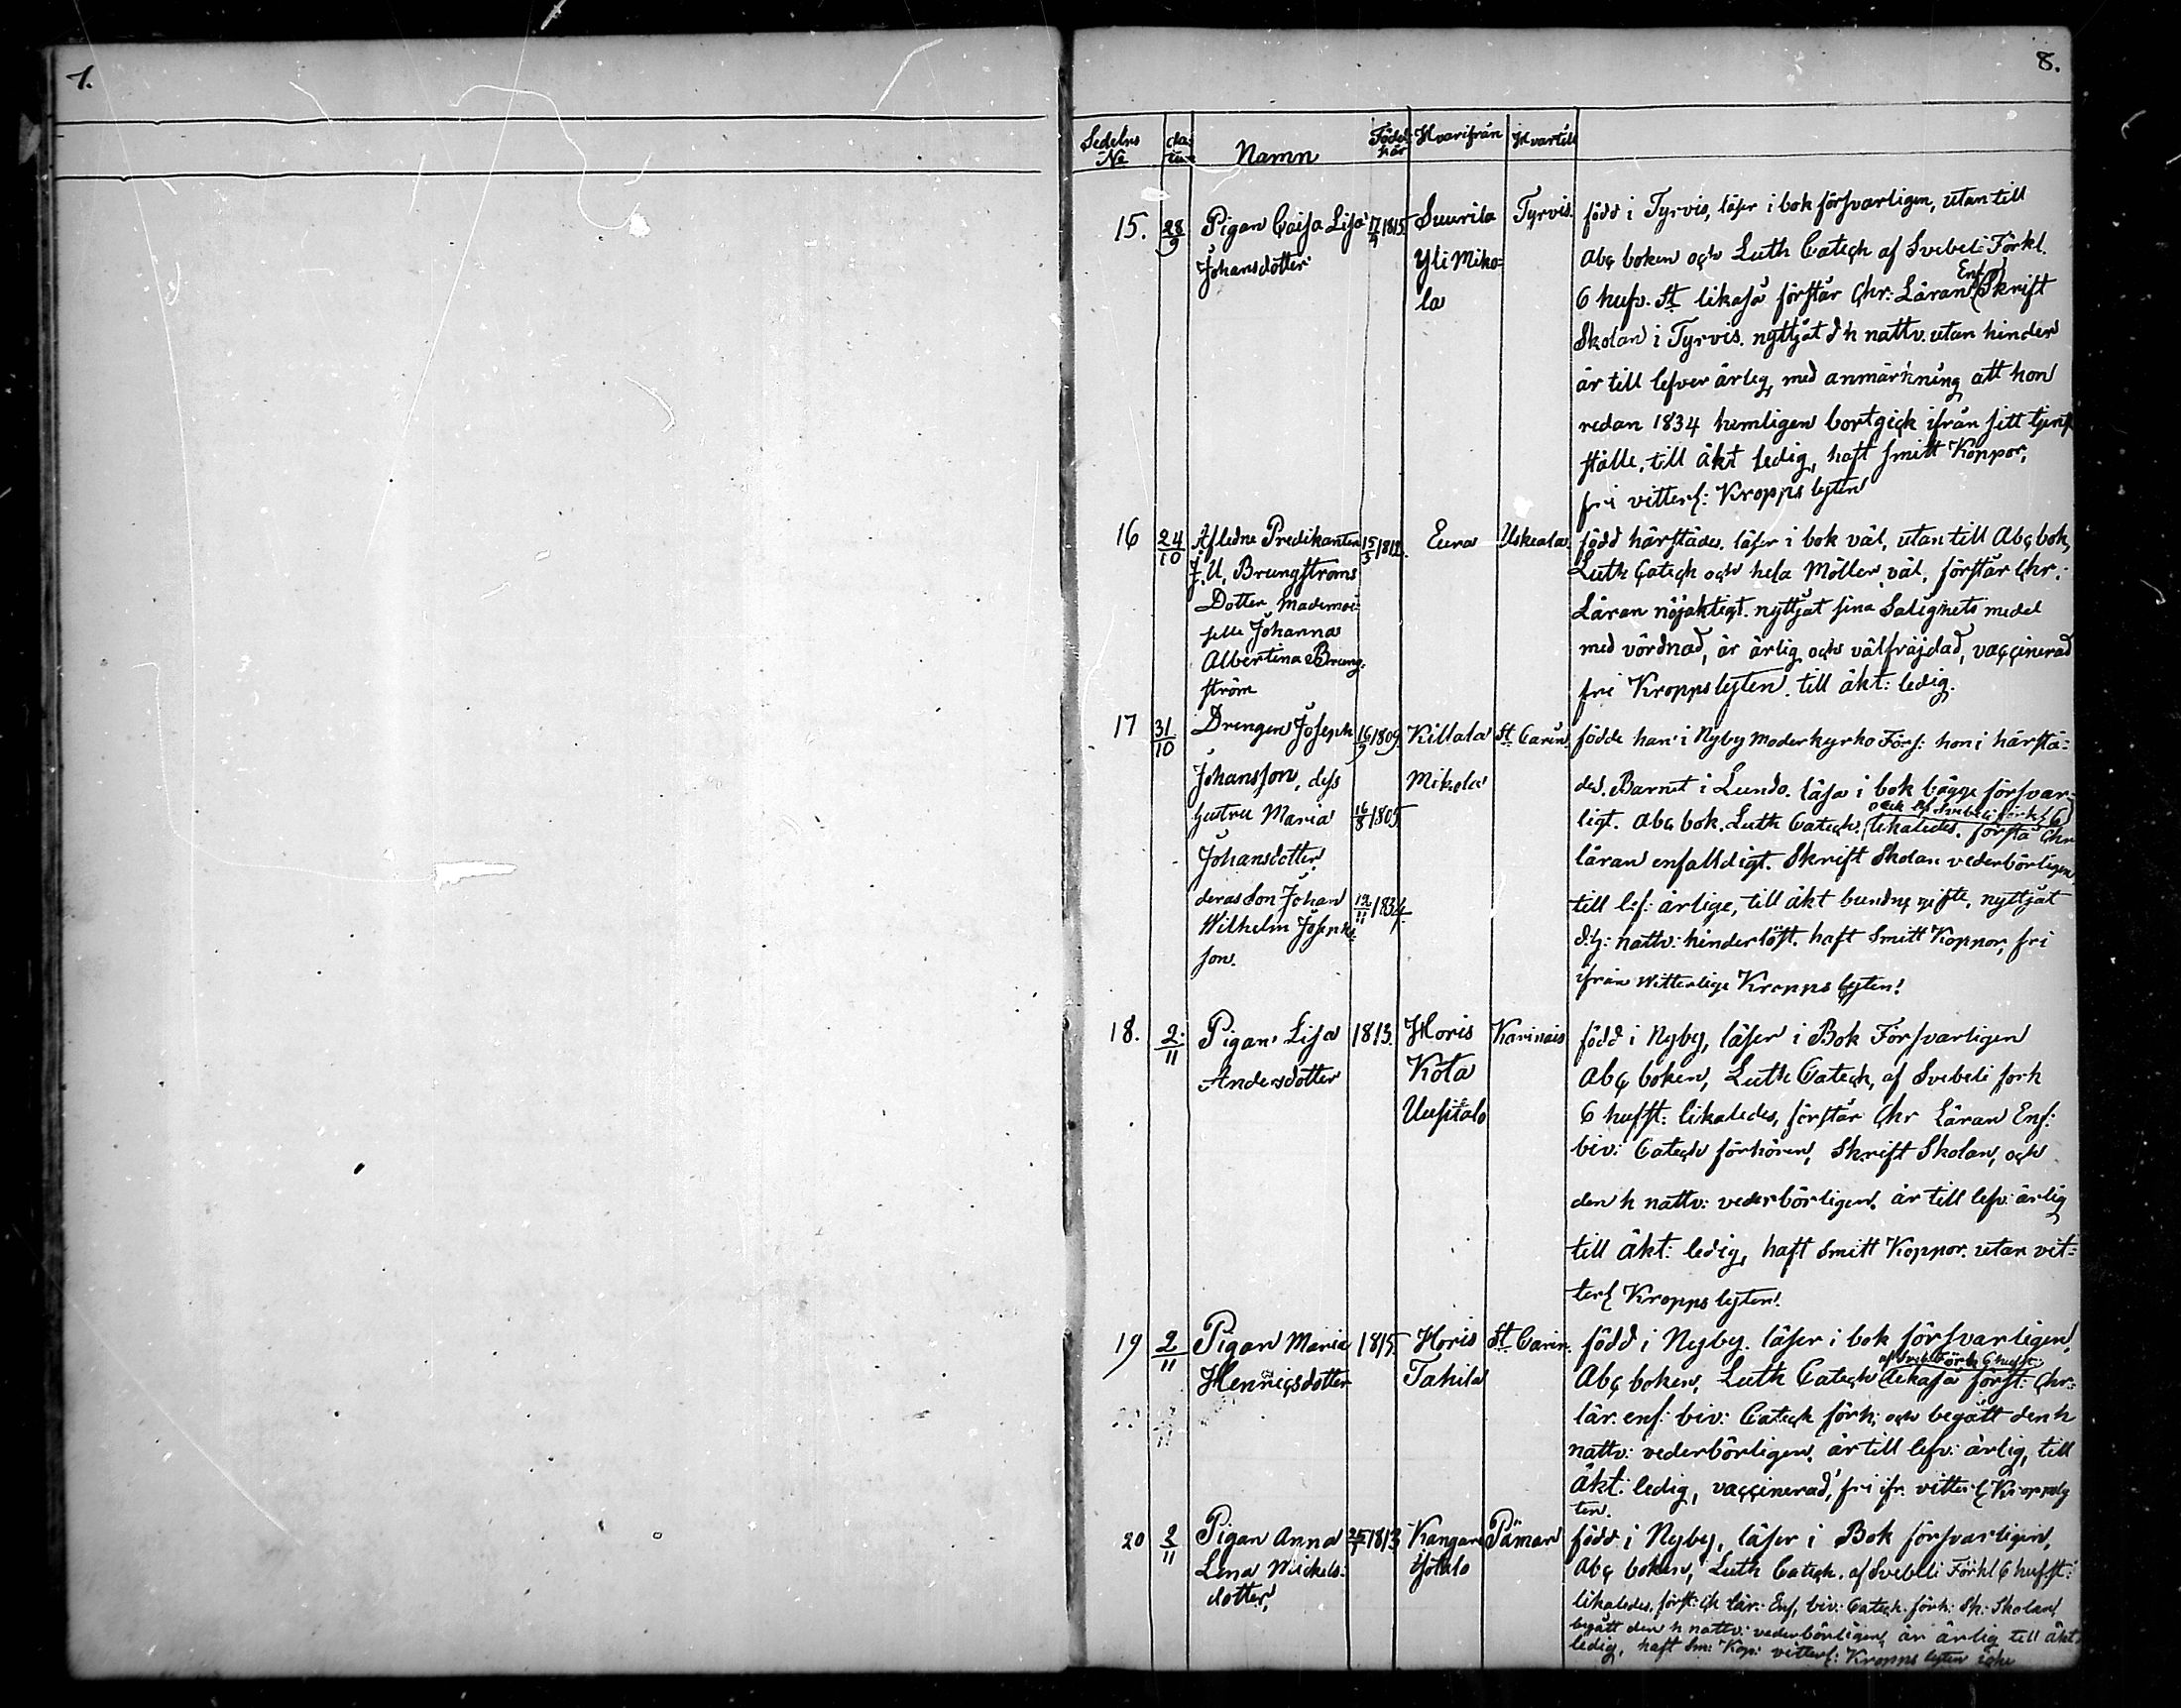 7.
8.
Sedelns No datu Namn Födelseår Hvarifrån Hvartill
15. 28/9 Pigan Caisa Lisa 17/4 1815. Suurila Tyrvis. född i Tyrvis, läser i bok försvarligen, utan till
Johansdotter Yli Miko= Abc boken och Luth Catech af Svebeli Förkl.
la 6 hufv. St likaså förstår Chr: Läran Enf. Skrift
Skolan i Tyrvis. nyttjat d h nattv. utan hinder
är till lefver ärlig, med anmärkning att hon
redan 1834 hemligen bortgick ifrån sitt tjenst
ställe, till äkt ledig, haft smitt Koppor,
fri vitterl: Kropps lyten
16 24/10 Afledne Predikanten 15/3 Eura Uskeala född härstädes. läser i bok väl, utan till Abc bok,
J. U. Brungströms Luth Catech och hela Möller väl, förstår Chr:
Dotter Mademoi= Läran nöjaktigt. nyttjat sina Salighets medel
selle Johanna
Albertina Brung= med vördnad, är ärlig och välfräjdad, vaccinerad
ström fri Kropps lyten. till äkt: ledig.
17 31/10 Drengen Joseph 16/9 1809 Killala St Carin födde han i Nyby Moderkyrko Förs: hon i härstä=
Johansson, dess Mikola des. Barnet i Lundo. läsa i bok bägge försvar=
hustru Maria 16/8 1805 ligt. Abc bok. Luth Catech. och af Svebeli förkl 6 likaledes. förstå Chr
Johansdotter läran enfalldigt. Skrift Skolan vederbörligen
deras Son Johan 12/11 1834. till lef: ärlige, till äkt bundne gifte, nyttjat
Wilhelm Josephs d. h: nattv: hinderlöst. haft Smitt Koppor, fri
son. ifrån Witterlige Kropps lyten!
18. 2/11 Pigan Lisa 1813. Horis Karinais född i Nyby, läser i Bok Försvarligen
Andersdotter Kota Abc boken, Luth Catech, af Svebeli fork
Uusitalo 6 hufst: likaledes, förstår Chr Läran Enf:
biv: Catech förhören, Skrift Skolan, och
den h nattv: vederbörligen. är till lefv: ärlig
till äkt: ledig, haft Smitt Koppor. utan vit=
terl Kropps lyten!
19 2/11 Pigan Maria 1815. Horis St Carin. född i Nyby. läser i bok försvarligen,
Henricsdotter Tahila Abc boken, Luth Catech af Sveb Förk 6 hufst: likaså först: Chr:
lär: enf: biv: Catech förh: och begått den h
nattv: vederbörligen. är till lefv: ärlig, till
Äkt: ledig, vaccinerad, fri ifr. vitterl Kroppsly
ten.
20 2/11 Pigan Anna 1813 Kangare Pämar född i Nyby, läser i Bok försvarligen,
Lena Mickels= isotalo Abc boken, Luth Catech. af Svebeli Förkl 6 hufst:
dotter, likaledes, först: Ch lär: Enf, biv: Catech. förh: Sk: Skolan
begått den h nattv: vederbörligen, är ärlig till äkt:
ledig, haft Sm: Kop: vitterl: Kropps lyten icke